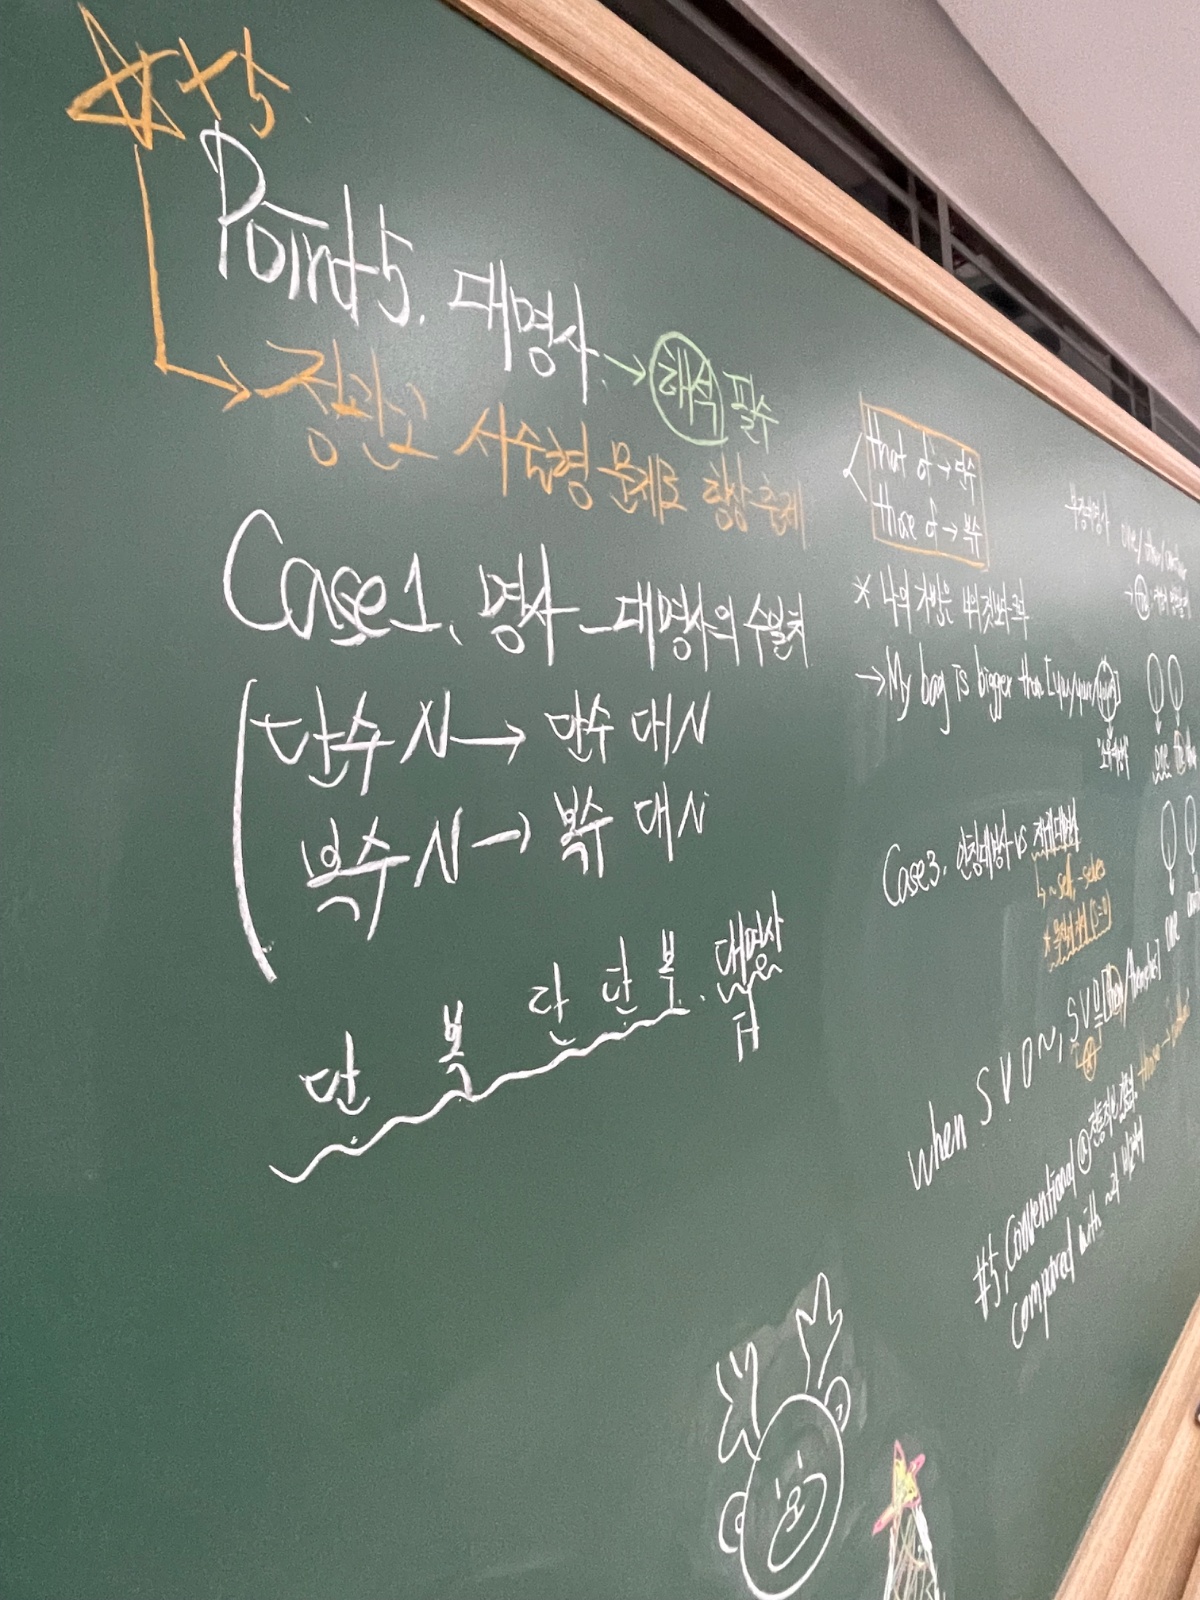 ☆×5
Point5. 대명사 → 해석 필수
→ 서술형 문제로 항상 출제
Case1. 명사 - 대명사의 수일치
단수 시 → 단수 대시
복수 시 → 복수 대시
단 복 단 단 복. 대명사
that of → 단수
those of → 복수
* 나의 가방은 너의 것보다 크다
→ My bag is bigger than [you/your/yours]
"소유대명사"
Case3. 인칭대명사 vs 재귀대명사
↳ ~self, -selves
when S V O ~, S V O [them/themselves]
#5. Conventional ⓐ 전통적인, 관습적
compared with ~과 비교하여
부정대명사 one / other / another
one
one